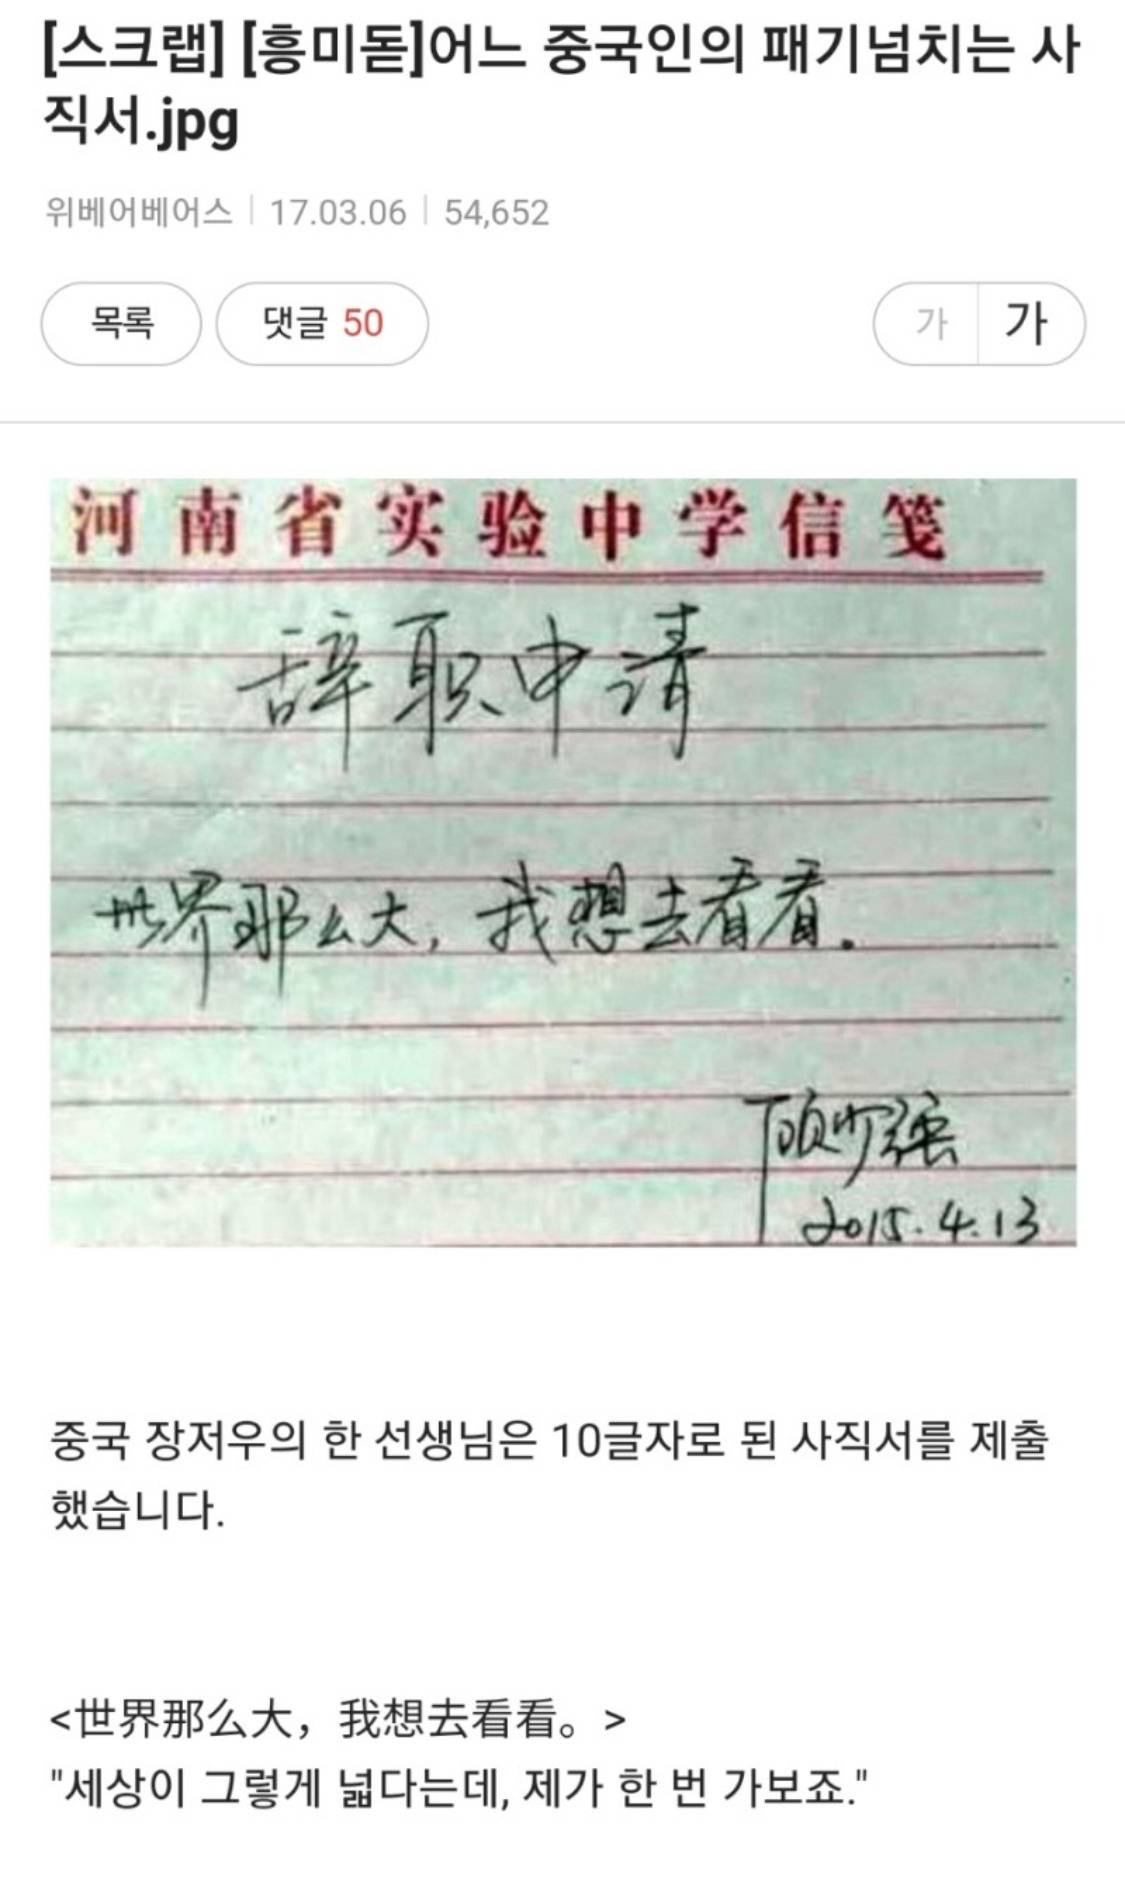 [스크랩] [흥미돋]어느 중국인의 패기넘치는 사
직서.jpg
위베어베어스 | 17.03.06 | 54,652
목록 댓글 50 가 가
河南省实验中学信笺
辞职申请
世界那么大，我想去看看.
顾少强
2015.4.13
중국 장저우의 한 선생님은 10글자로 된 사직서를 제출
했습니다.
<世界那么大，我想去看看。>
"세상이 그렇게 넓다는데, 제가 한 번 가보죠."